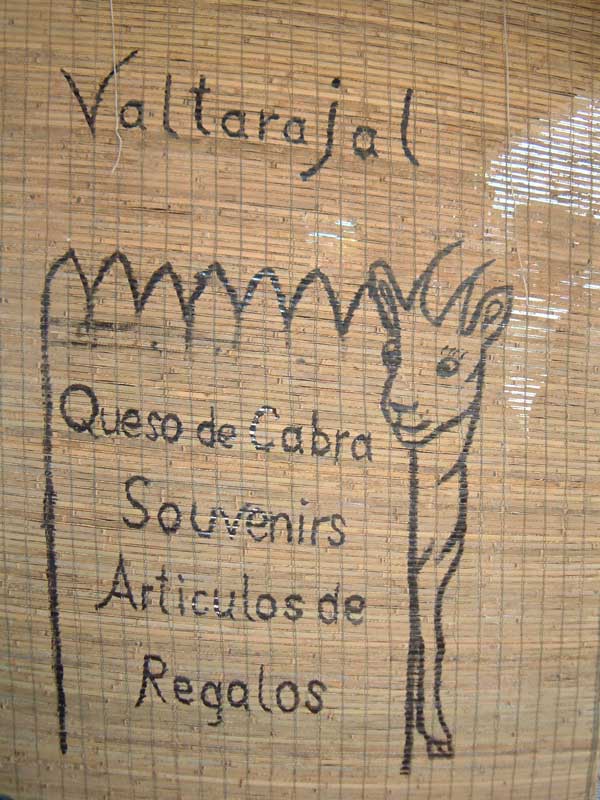 Valtarajal
Queso de Cabra
Souvenirs
Articulos de
Regalos